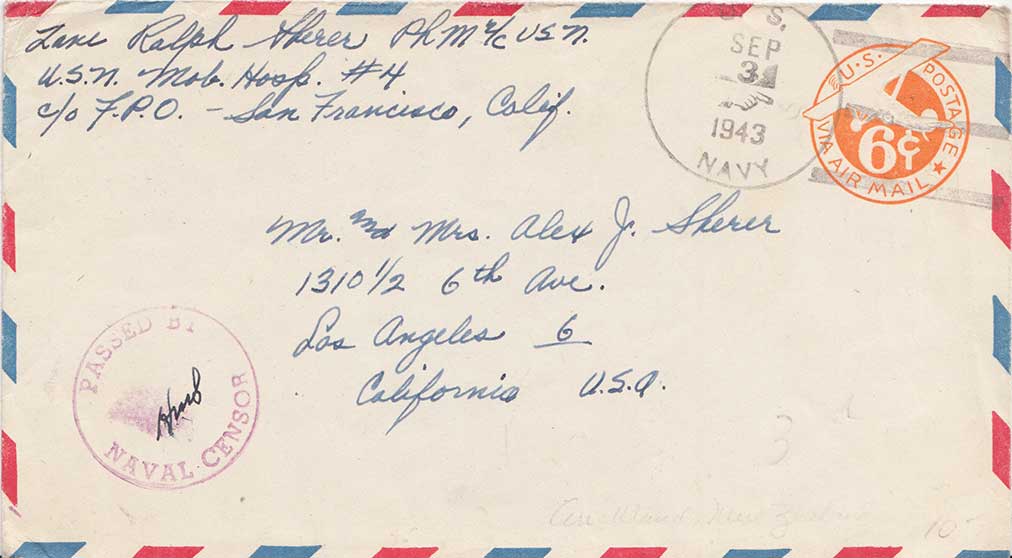 Lane Ralph Sherer PhM 2/c USN.
U.S.N. Mob. Hosp. #4
c/o F.P.O. - San Francisco, Calif.
U. S.
SEP
3
1943
NAVY
U.S. POSTAGE
6¢
VIA AIR MAIL
Mr. and Mrs. Alex J. Sherer
1310 1/2 6th Ave.
Los Angeles 6
California U.S.A.
PASSED BY
NAVAL CENSOR
3
New Zealand
10